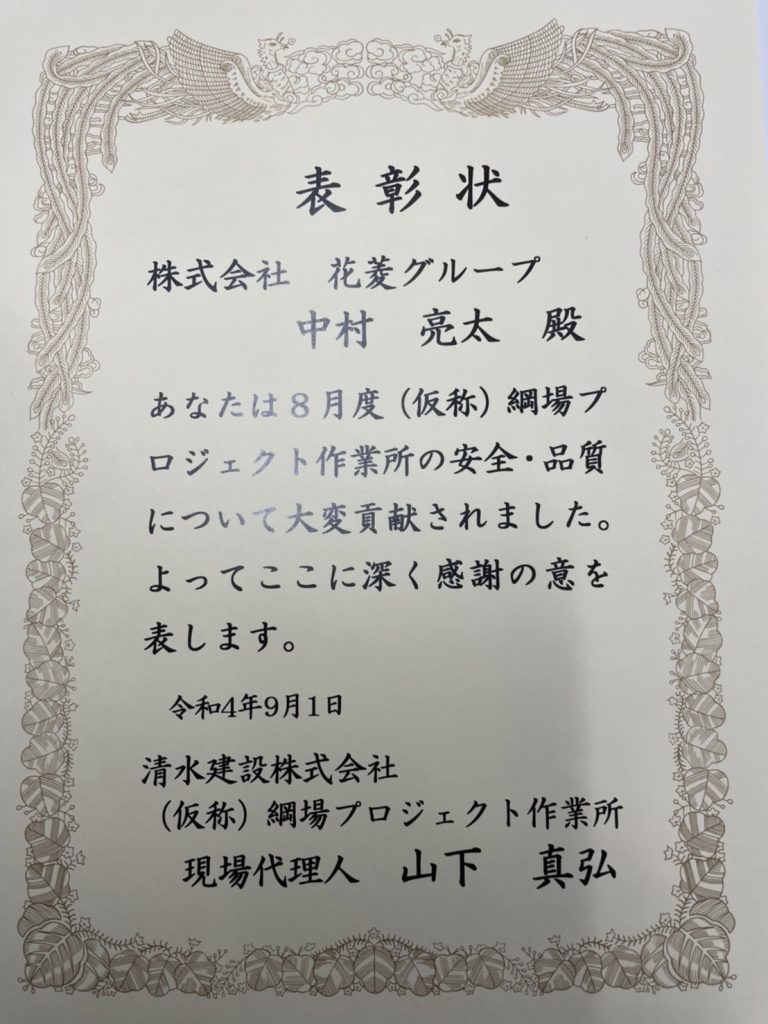 表彰状
株式会社　花菱グループ
中村　亮太　殿
あなたは８月度（仮称）綱場プ
ロジェクト作業所の安全・品質
について大変貢献されました。
よってここに深く感謝の意を
表します。
令和4年9月1日
清水建設株式会社
（仮称）綱場プロジェクト作業所
現場代理人　山下　真弘